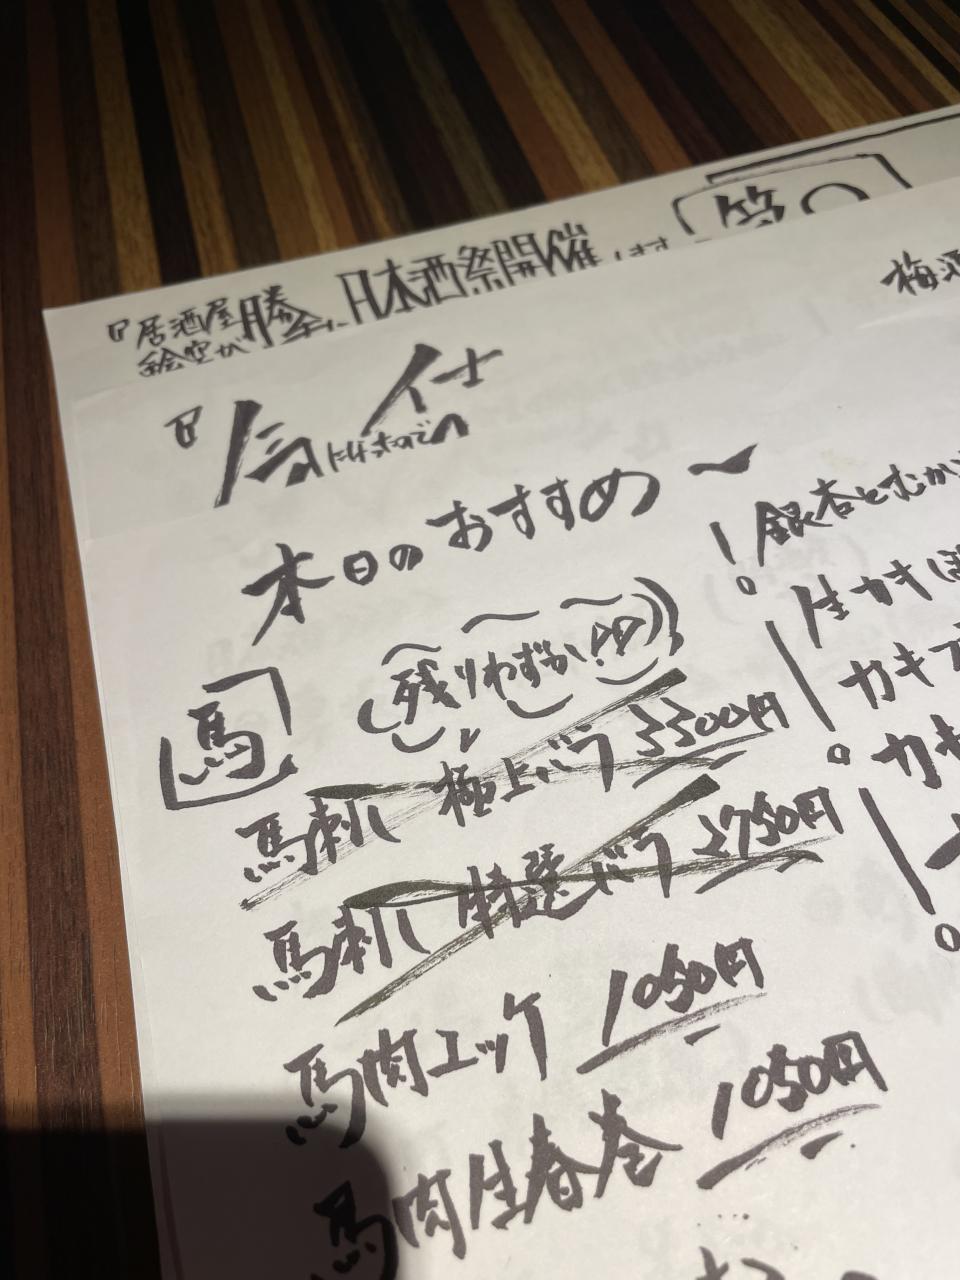 居酒屋
絵空が勝手に日本酒祭開催します
第〇
梅酒
本日のおすすめ〜
馬
残りわずか!!
馬刺し 極上バラ 3300円
馬刺し 特選バラ 2750円
馬肉ユッケ 1050円
馬肉生春巻 1050円
銀杏とむか
生カキ
カキフ
カキ